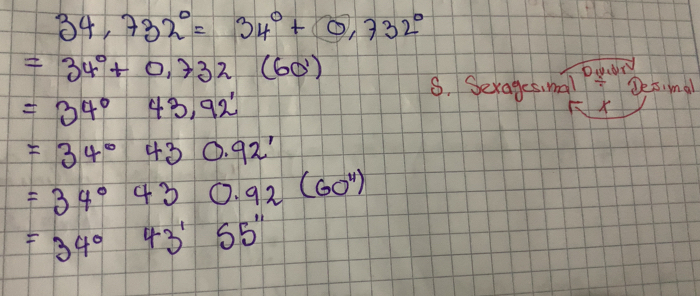 34,732° = 34° + 0,732°
= 34° + 0,732 (60')
= 34° 43,92'
= 34° 43 0.92'
= 34° 43 0.92 (60")
= 34° 43' 55"
Dividir
÷
S. Sexagesimal Desimal
x